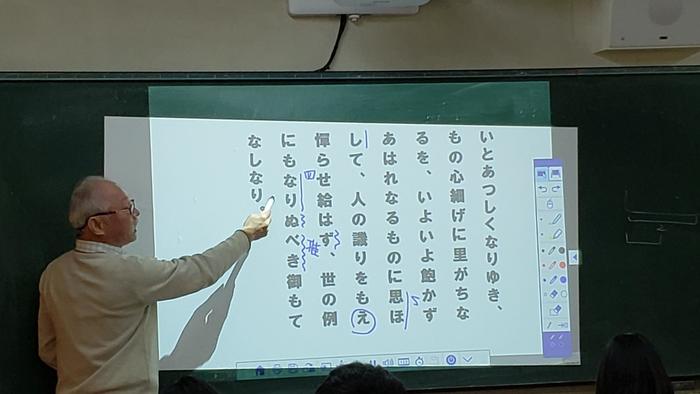 いとあつしくなりゆき、
もの心細げに里がちな
るを、いよいよ飽かず
あはれなるものに思ほ
して、人の譏りをもえ
憚らせ給はず、世の例
にもなりぬべき御もて
なしなり。
四